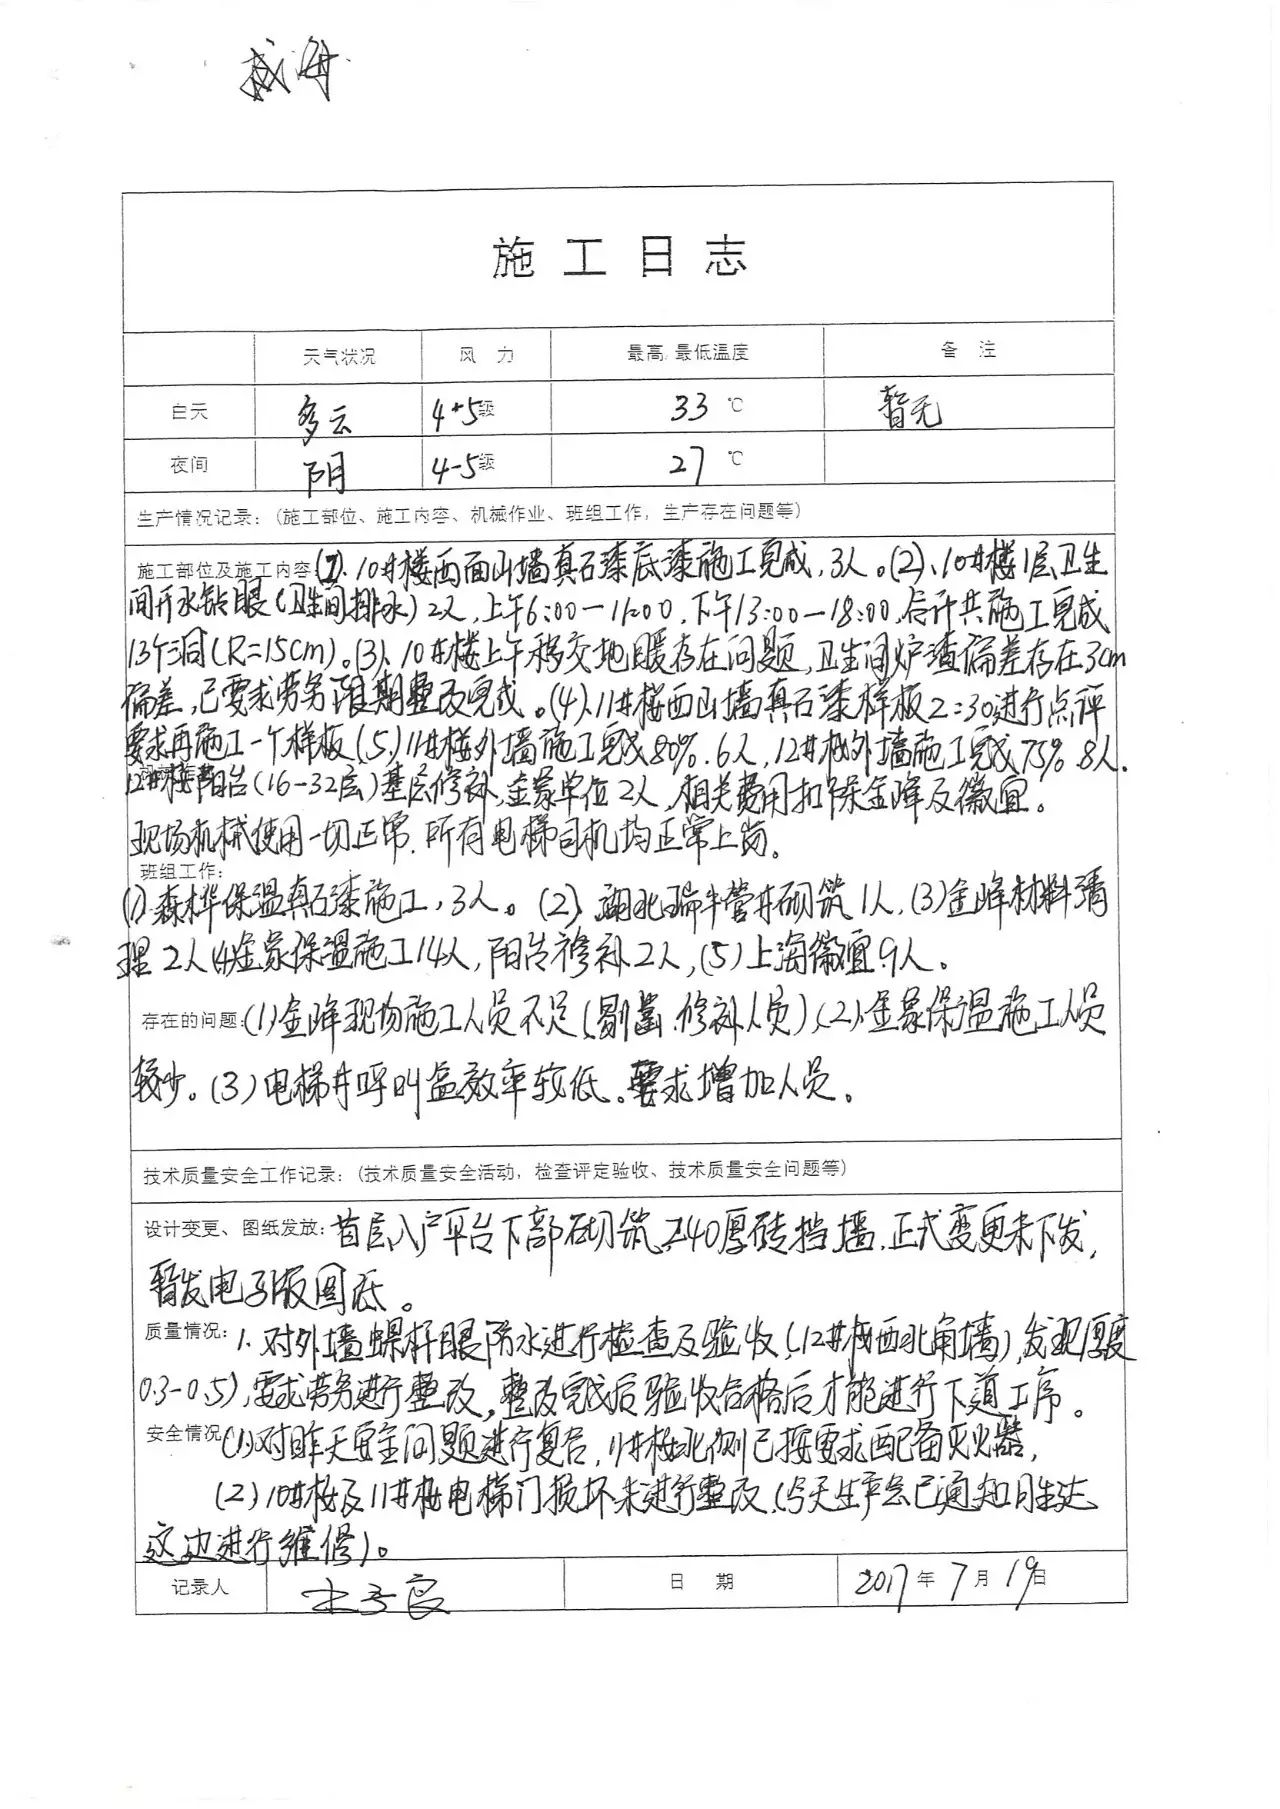 施工日志
天气状况 风力 最高.最低温度 备注
白天 多云 4-5级 33 ℃ 暂无
夜间 阴 4-5级 27 ℃
生产情况记录：(施工部位、施工内容、机械作业、班组工作，生产存在问题等)
施工部位及施工内容：(1)、10#楼西面山墙真石漆底漆施工完成，3人。(2)、10#楼1层卫生
间开水钻眼(卫生间排水)2人,上午6:00-11:00,下午13:00-18:00,合计共施工完成
13个洞(R=15cm)。(3)、10#楼上午移交地暖存在问题,卫生间炉渣偏差存在3cm
偏差,已要求劳务限期整改完成。(4)、11#楼西山墙真石漆样板2:30进行点评
要求再施工一个样板(5)、11#楼外墙施工完成80%.6人,12#楼外墙施工完成75%.8人.
12#楼阳台(16-32层)基层修补,金豪单位2人,相关费用扣除金峰及徽宜。
现场机械使用一切正常.所有电梯司机均正常上岗。
班组工作：
(1)、森桦保温真石漆施工,3人。(2)、湖北瑞牛管井砌筑1人,(3)金峰材料清
理2人(4)金豪保温施工14人,阳台修补2人,(5)上海徽宜9人。
存在的问题：(1)金峰现场施工人员不足(剔凿.修补人员)、(2)、金豪保温施工人员
较少。(3)电梯井呼叫盒效率较低。要求增加人员。
技术质量安全工作记录：(技术质量安全活动，检查评定验收、技术质量安全问题等)
设计变更、图纸发放：首层入户平台下部砌筑240厚砖挡墙.正式变更未下发,
暂发电子版图纸。
质量情况：1.对外墙螺杆眼防水进行检查及验收,(12#楼西北角墙),发现厚度
0.3-0.5),要求劳务进行整改,整改完成后验收合格后才能进行下道工序。
安全情况 (1)、对昨天安全问题进行复合,11#楼北侧已按要求配备灭火器,
(2)10#楼及11#楼电梯门损坏未进行整改,(今天生产会已通知月生达
这边进行维修)。
记录人 日期 2017年7月19日